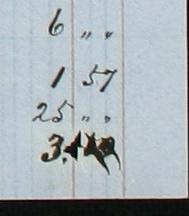 6 „ „
1 57
25 „ „
3.